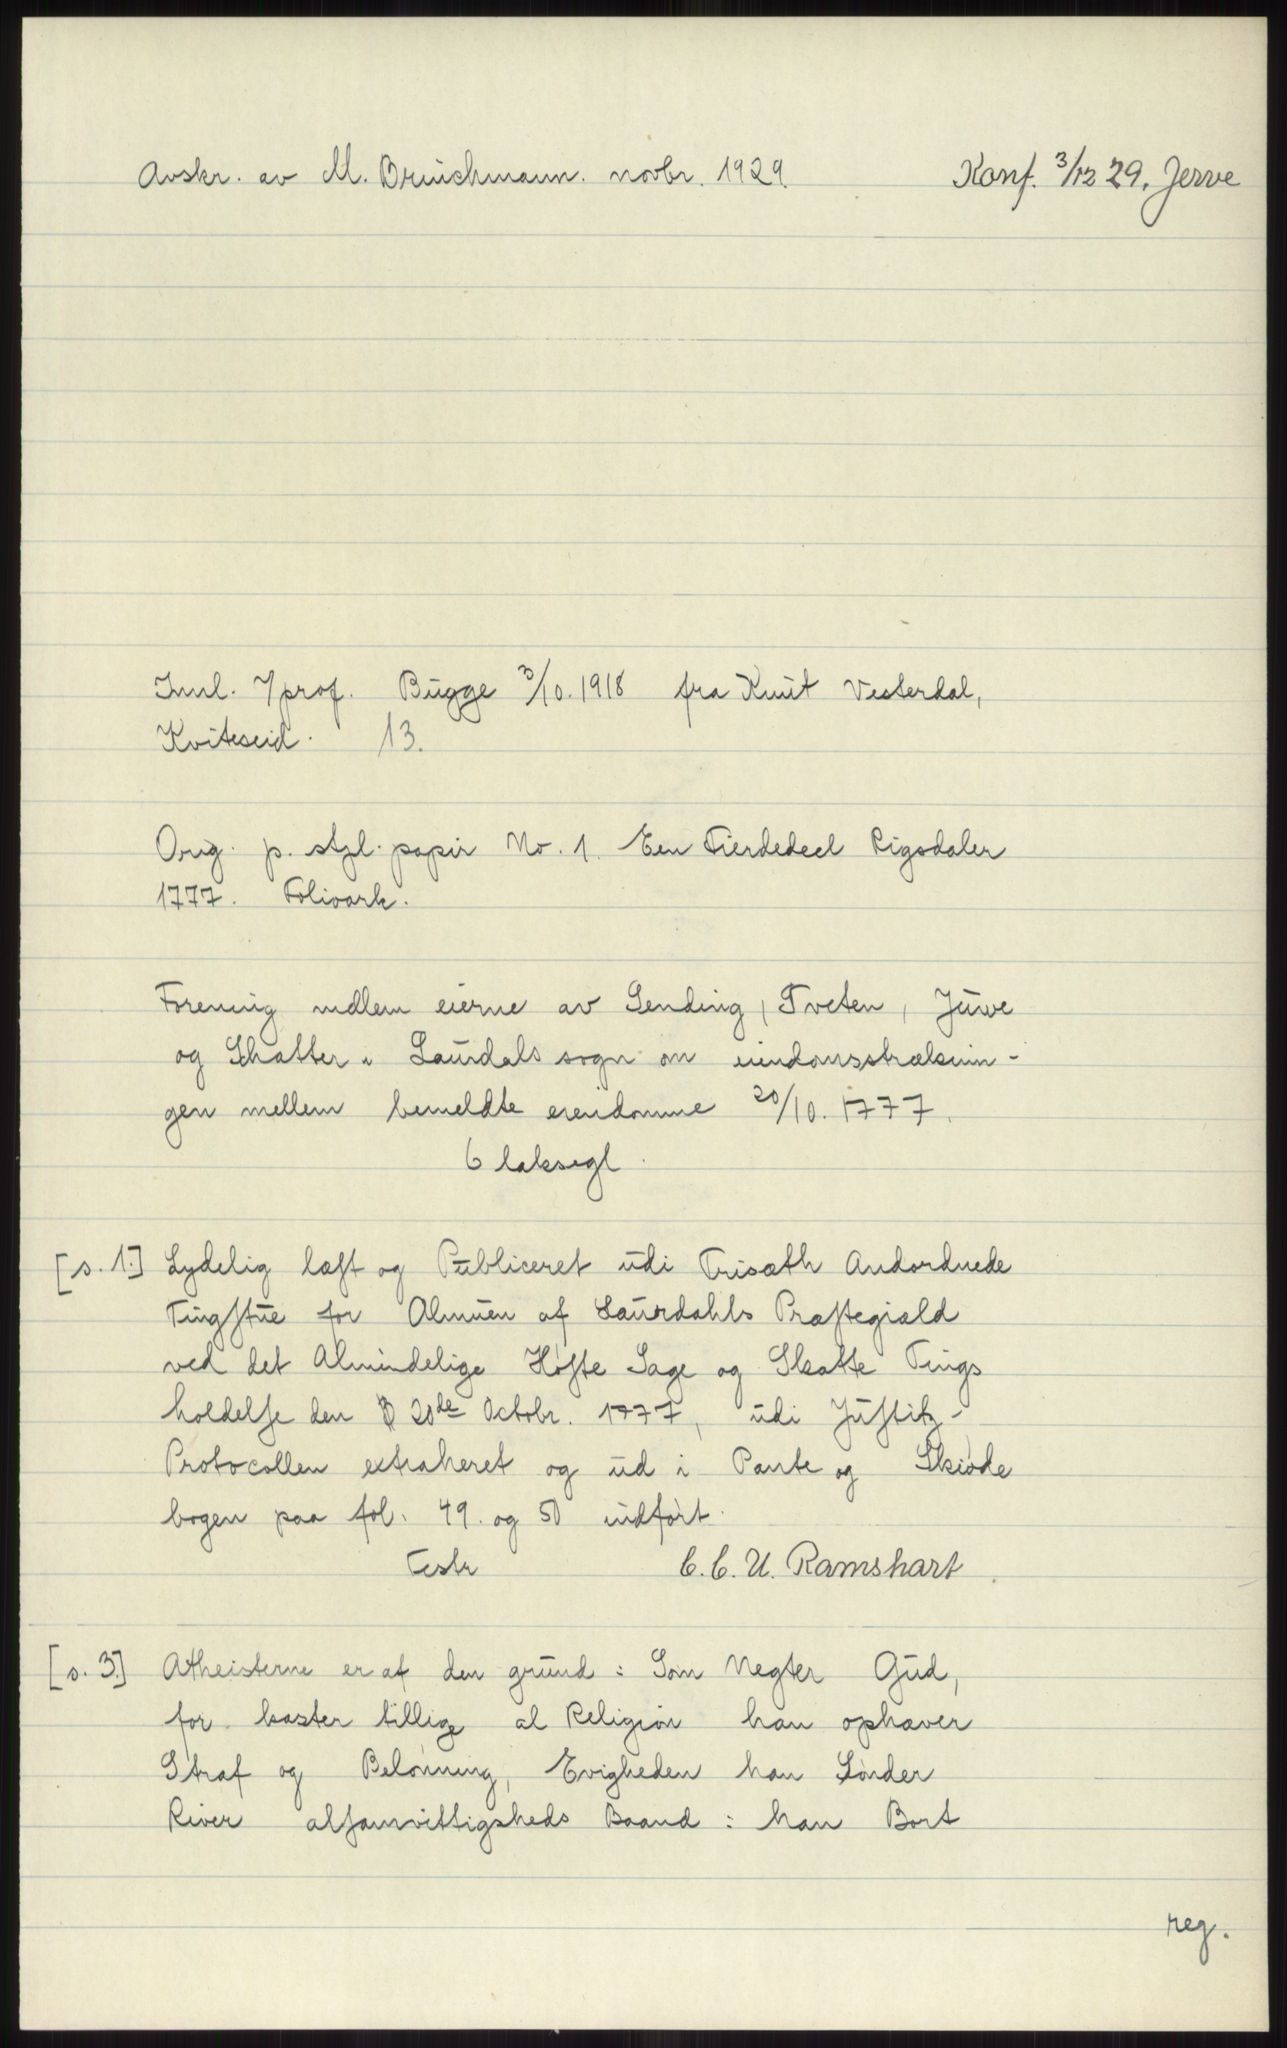 Avskr. av M. Bruichmann. novbr. 1929. Konf. 3/12 29, Jerve
Innl. t/prof. Bugge 3/10. 1918 fra Knut Vesterdal,
Kviteseid. 13.
Orig. p. stpl. papir No. 1. Een Fierdedeel Rigsdaler
1777. Folioark.
Forening mellem eierne av Lending, Tveten, Juve
og Skatter i Laurdals sogn om eiendomsstrækning-
gen mellem bemeldte eiendomme 20/10. 1777.
6 laksegl.
[s. 1.] Lydelig læst og Publiceret udi Trisæth Andordnede
Tingstue for Almuen af Laurdahls Præstegiæld
ved det Almindelige Høste Sage og Skatte Tings
holdelse den 20de Octobr. 1777, udi Justitz-
Protocollen extraheret og ud i Pante og Skiøde
bogen paa fol. 49. og 50 indført.
Testr C. C. U. Ramshart.
[s. 3.] Atheisterne er af den grund: Som Negter Gud,
for kaster tillige al Religion han ophæver
Straf og Belønning, Evigheden han Sønder
River alsamvittigheds Baand: han Bort
reg.